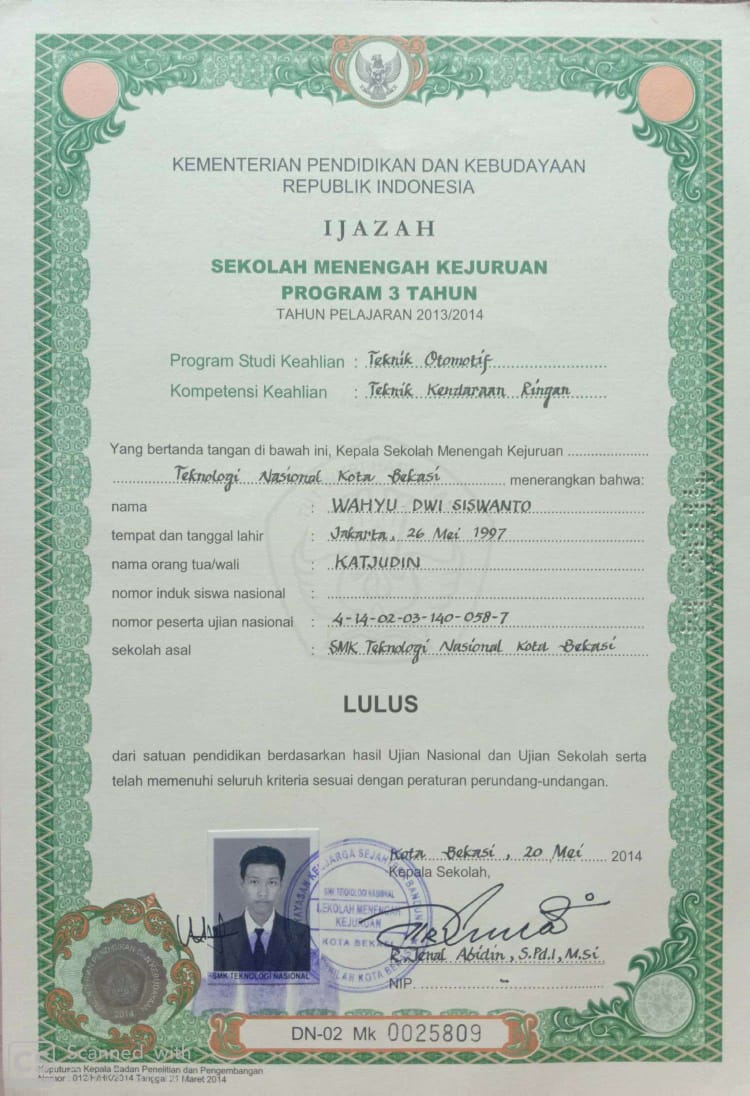 KEMENTERIAN PENDIDIKAN DAN KEBUDAYAAN
REPUBLIK INDONESIA
IJAZAH
SEKOLAH MENENGAH KEJURUAN
PROGRAM 3 TAHUN
TAHUN PELAJARAN 2013/2014
Program Studi Keahlian : Teknik Otomotif
Kompetensi Keahlian : Teknik Kendaraan Ringan
Yang bertanda tangan di bawah ini, Kepala Sekolah Menengah Kejuruan
Teknologi Nasional Kota Bekasi menerangkan bahwa:
nama : WAHYU DWI SISWANTO
tempat dan tanggal lahir : Jakarta, 26 Mei 1997
nama orang tua/wali : KATJUDIN
nomor induk siswa nasional :
nomor peserta ujian nasional : 4-14-02-03-140-058-7
sekolah asal : SMK Teknologi Nasional Kota Bekasi
LULUS
dari satuan pendidikan berdasarkan hasil Ujian Nasional dan Ujian Sekolah serta
telah memenuhi seluruh kriteria sesuai dengan peraturan perundang-undangan.
Kota Bekasi, 20 Mei 2014
Kepala Sekolah,
SMK TEKNOLOGI NASIONAL
SEKOLAH MENENGAH
KEJURUAN
KOTA BEKASI
R. Jenal Abidin, S.Pd.I, M.Si
NIP. -
SMK TEKNOLOGI NASIONAL
2014
DN-02 Mk 0025809
Scanned with
Keputusan Kepala Badan Penelitian dan Pengembangan
Nomor : 012/H/HK/2014 Tanggal 21 Maret 2014